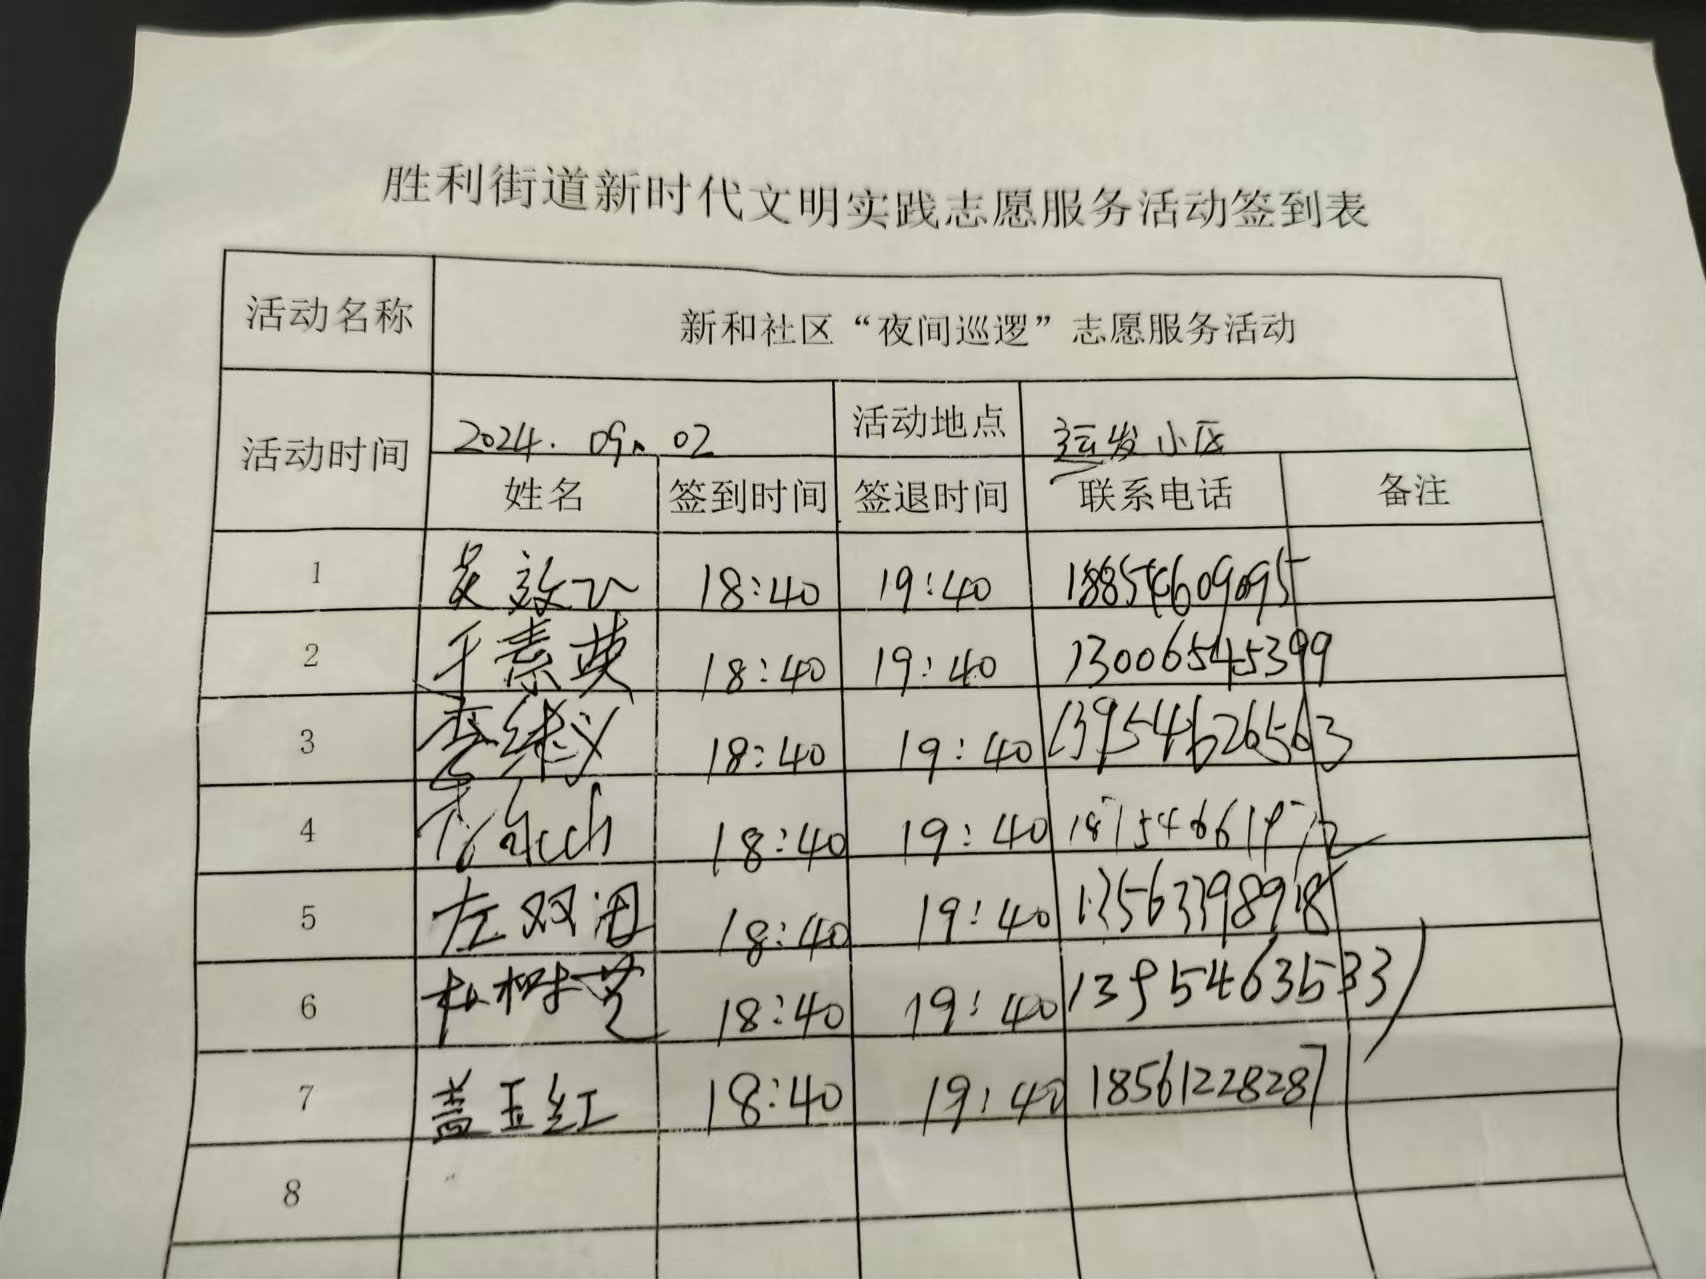 胜利街道新时代文明实践志愿服务活动签到表
活动名称 新和社区“夜间巡逻”志愿服务活动
活动时间 2024.09.02 活动地点 运发小区
姓名 签到时间 签退时间 联系电话 备注
1 18:40 19:40
2 于素英 18:40 19:40 13006545399
3 李继义 18:40 19:40 13954626563
4 18:40 19:40
5 左双泪 18:40 19:40 13563398918
6 杜树芝 18:40 19:40 1395463533
7 盖玉红 18:40 19:40 18561228287
8